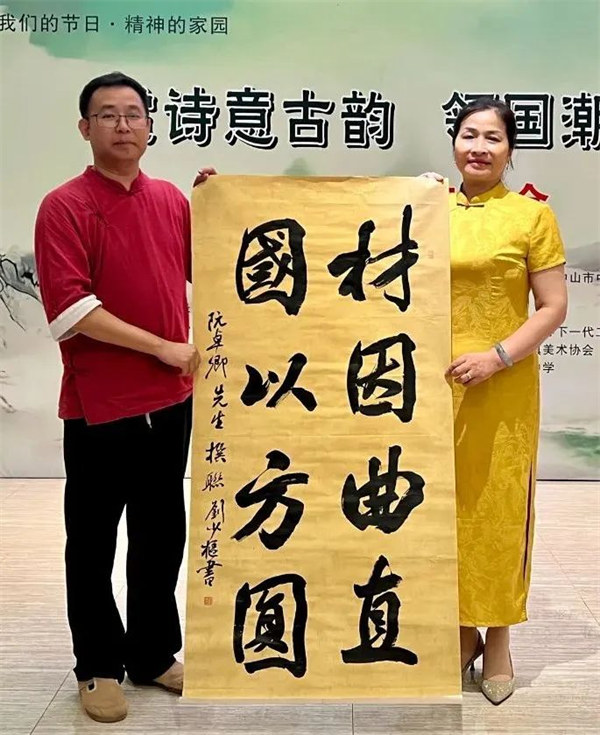 我们的节日·精神的家园
诗意古韵 领国潮
会
山市
下一代
美术协会
学
材因曲直
國以方圓
阮卓卿先生撰聯 劉少樞書